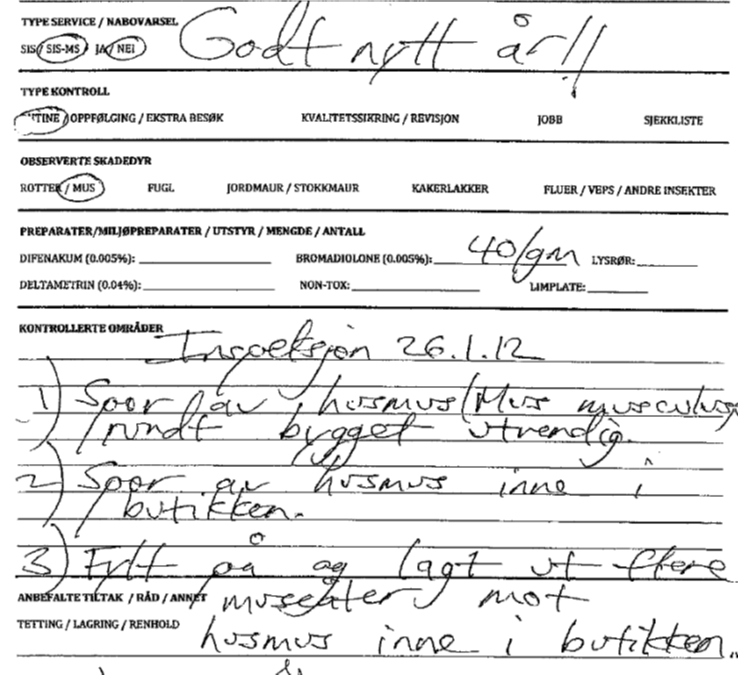 TYPE SERVICE / NABOVARSEL
Godt nytt år!!
SIS / SIS-MS JA / NEI
TYPE KONTROLL
TINE / OPPFØLGING / EKSTRA BESØK KVALITETSSIKRING / REVISJON JOBB SJEKKLISTE
OBSERVERTE SKADEDYR
ROTTER / MUS FUGL JORDMAUR / STOKKMAUR KAKERLAKKER FLUER / VEPS / ANDRE INSEKTER
PREPARATER/MILJØPREPARATER / UTSTYR / MENGDE / ANTALL
DIFENAKUM (0.005%): BROMADIOLONE (0.005%): 40/gm LYSRØR:
DELTAMETRIN (0.04%): NON-TOX: LIMPLATE:
KONTROLLERTE OMRÅDER
Inspeksjon 26.1.12
1) Spor av husmus (Mus musculus)
rundt bygget utvendig.
2) Spor av husmus inne i
butikken.
3) Fylt på og lagt ut flere
ANBEFALTE TILTAK / RÅD / ANNET museåter mot
TETTING / LAGRING / RENHOLD
husmus inne i butikken.